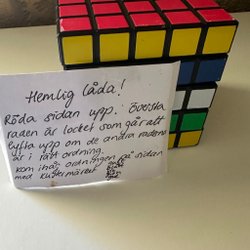 Hemlig låda!
Röda sidan upp. Översta
raden är locket som går att
lyfta upp om de andra raderna
är i rätt ordning.
Kom ihåg ordningen på sidan
med klistermärket